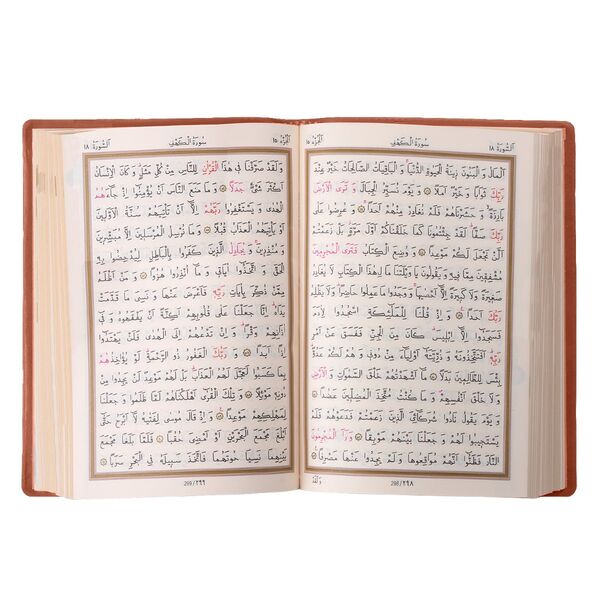 اَلْجُزْءُ ١٥ سُورَةُ الْكَهْفِ اَلسُّورَةُ ١٨
اَلْمَالُ وَ الْبَنُونَ زِينَةُ الْحَيٰوةِ الدُّنْيَا وَ الْبَاقِيَاتُ الصَّالِحَاتُ خَيْرٌ عِنْدَ
رَبِّكَ ثَوَابًا وَ خَيْرٌ اَمَلًا وَ يَوْمَ نُسَيِّرُ الْجِبَالَ وَ تَرَى الْاَرْضَ
بَارِزَةً وَ حَشَرْنَاهُمْ فَلَمْ نُغَادِرْ مِنْهُمْ اَحَدًا وَ عُرِضُوا عَلٰى
رَبِّكَ صَفًّا لَقَدْ جِئْتُمُونَا كَمَا خَلَقْنَاكُمْ اَوَّلَ مَرَّةٍ بَلْ زَعَمْتُمْ
اَلَّنْ نَجْعَلَ لَكُمْ مَوْعِدًا وَ وُضِعَ الْكِتَابُ فَتَرَى الْمُجْرِمِينَ
مُشْفِقِينَ مِمَّا فِيهِ وَ يَقُولُونَ يَا وَيْلَتَنَا مَا لِهٰذَا الْكِتَابِ لَا يُغَادِرُ
صَغِيرَةً وَ لَا كَبِيرَةً اِلَّا اَحْصٰيهَا وَ وَجَدُوا مَا عَمِلُوا حَاضِرًا وَ لَا يَظْلِمُ
رَبُّكَ اَحَدًا وَ اِذْ قُلْنَا لِلْمَلٰئِكَةِ اسْجُدُوا لِاٰدَمَ
فَسَجَدُوا اِلَّا اِبْلِيسَ كَانَ مِنَ الْجِنِّ فَفَسَقَ عَنْ اَمْرِ
رَبِّهِ اَفَتَتَّخِذُونَهُ وَ ذُرِّيَّتَهُ اَوْلِيَاءَ مِنْ دُونِى وَ هُمْ لَكُمْ عَدُوٌّ
بِئْسَ لِلظَّالِمِينَ بَدَلًا مَا اَشْهَدْتُهُمْ خَلْقَ السَّمٰوَاتِ وَ الْاَرْضِ
وَ لَا خَلْقَ اَنْفُسِهِمْ وَ مَا كُنْتُ مُتَّخِذَ الْمُضِلِّينَ عَضُدًا
وَ يَوْمَ يَقُولُ نَادُوا شُرَكَائِىَ الَّذِينَ زَعَمْتُمْ فَدَعَوْهُمْ فَلَمْ
يَسْتَجِيبُوا لَهُمْ وَ جَعَلْنَا بَيْنَهُمْ مَوْبِقًا وَ رَاَ الْمُجْرِمُونَ
النَّارَ فَظَنُّوا اَنَّهُمْ مُوَاقِعُوهَا وَ لَمْ يَجِدُوا عَنْهَا مَصْرِفًا
298/٢٩٨
وَ لَقَدْ
اَلْجُزْءُ ١٥ سُورَةُ الْكَهْفِ اَلسُّورَةُ ١٨
وَ لَقَدْ صَرَّفْنَا فِى هٰذَا الْقُرْاٰنِ لِلنَّاسِ مِنْ كُلِّ مَثَلٍ وَ كَانَ الْاِنْسَانُ
اَكْثَرَ شَىْءٍ جَدَلًا وَ مَا مَنَعَ النَّاسَ اَنْ يُؤْمِنُوا اِذْ جَاءَهُمُ
الْهُدٰى وَ يَسْتَغْفِرُوا رَبَّهُمْ اِلَّا اَنْ تَأْتِيَهُمْ سُنَّةُ الْاَوَّلِينَ
اَوْ يَأْتِيَهُمُ الْعَذَابُ قُبُلًا وَ مَا نُرْسِلُ الْمُرْسَلِينَ اِلَّا مُبَشِّرِينَ
وَ مُنْذِرِينَ وَ يُجَادِلُ الَّذِينَ كَفَرُوا بِالْبَاطِلِ لِيُدْحِضُوا بِهِ
الْحَقَّ وَ اتَّخَذُوا اٰيَاتِى وَ مَا اُنْذِرُوا هُزُوًا وَ مَنْ اَظْلَمُ
مِمَّنْ ذُكِّرَ بِاٰيَاتِ رَبِّهِ فَاَعْرَضَ عَنْهَا وَ نَسِىَ مَا قَدَّمَتْ
يَدَاهُ اِنَّا جَعَلْنَا عَلٰى قُلُوبِهِمْ اَكِنَّةً اَنْ يَفْقَهُوهُ وَ فِى
اٰذَانِهِمْ وَقْرًا وَ اِنْ تَدْعُهُمْ اِلَى الْهُدٰى فَلَنْ يَهْتَدُوا
اِذًا اَبَدًا وَ رَبُّكَ الْغَفُورُ ذُو الرَّحْمَةِ لَوْ يُؤَاخِذُهُمْ
بِمَا كَسَبُوا لَعَجَّلَ لَهُمُ الْعَذَابَ بَلْ لَهُمْ مَوْعِدٌ لَنْ يَجِدُوا مِنْ
دُونِهِ مَوْئِلًا وَ تِلْكَ الْقُرٰى اَهْلَكْنَاهُمْ لَمَّا ظَلَمُوا وَ جَعَلْنَا
لِمَهْلِكِهِمْ مَوْعِدًا وَ اِذْ قَالَ مُوسٰى لِفَتٰيهُ لَا اَبْرَحُ حَتّٰى
اَبْلُغَ مَجْمَعَ الْبَحْرَيْنِ اَوْ اَمْضِىَ حُقُبًا فَلَمَّا بَلَغَا مَجْمَعَ
بَيْنِهِمَا نَسِيَا حُوتَهُمَا فَاتَّخَذَ سَبِيلَهُ فِى الْبَحْرِ سَرَبًا
299/٢٩٩